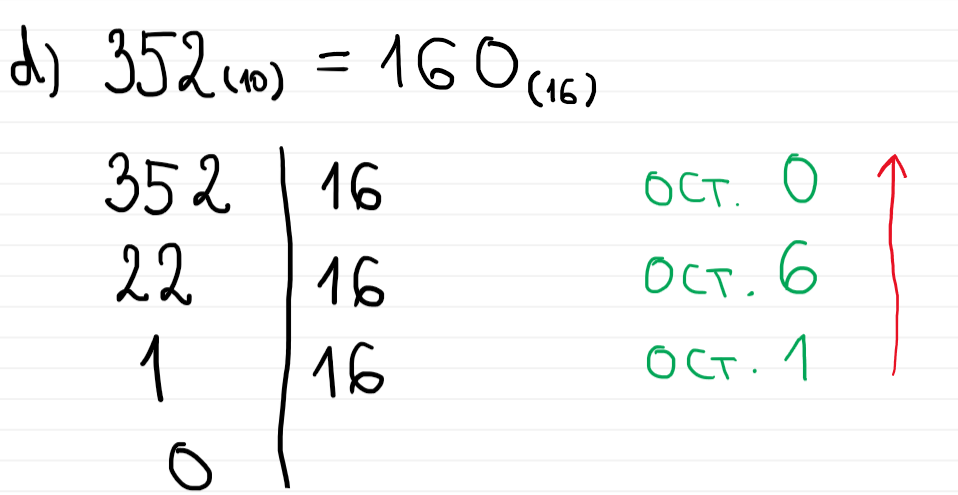 d) 352(10) = 160(16)
352 | 16 ост. 0
22 | 16 ост. 6
1 | 16 ост. 1
0 |